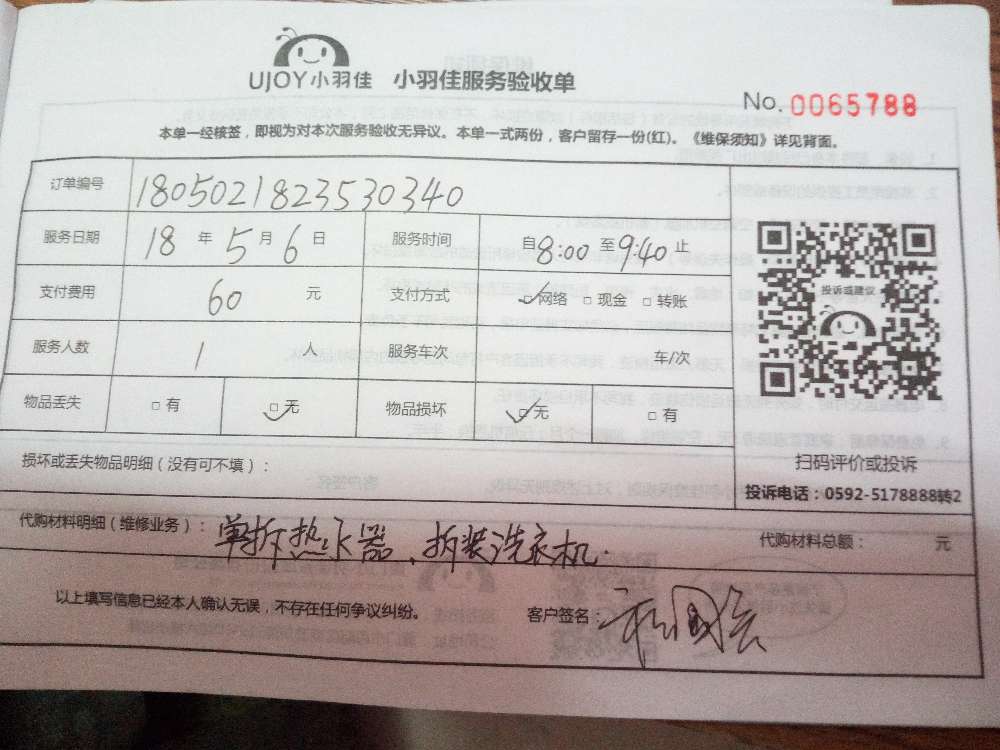 UJOY小羽佳 小羽佳服务验收单
No. 0065788
本单一经核签，即视为对本次服务验收无异议。本单一式两份，客户留存一份(红)。《维保须知》详见背面。
订单编号 1805021823530340
服务日期 18 年 5 月 6 日 服务时间 自8:00至9:40止
支付费用 60 元 支付方式 ☑网络 □现金 □转账
服务人数 1 人 服务车次 车/次
物品丢失 □有 ☑无 物品损坏 ☑无 □有
投诉或建议
扫码评价或投诉
投诉电话：0592-5178888转2
损坏或丢失物品明细（没有可不填）：
代购材料明细（维修业务）：单拆热水器、拆装洗衣机. 代购材料总额： 元
以上填写信息已经本人确认无误，不存在任何争议纠纷。 客户签名：